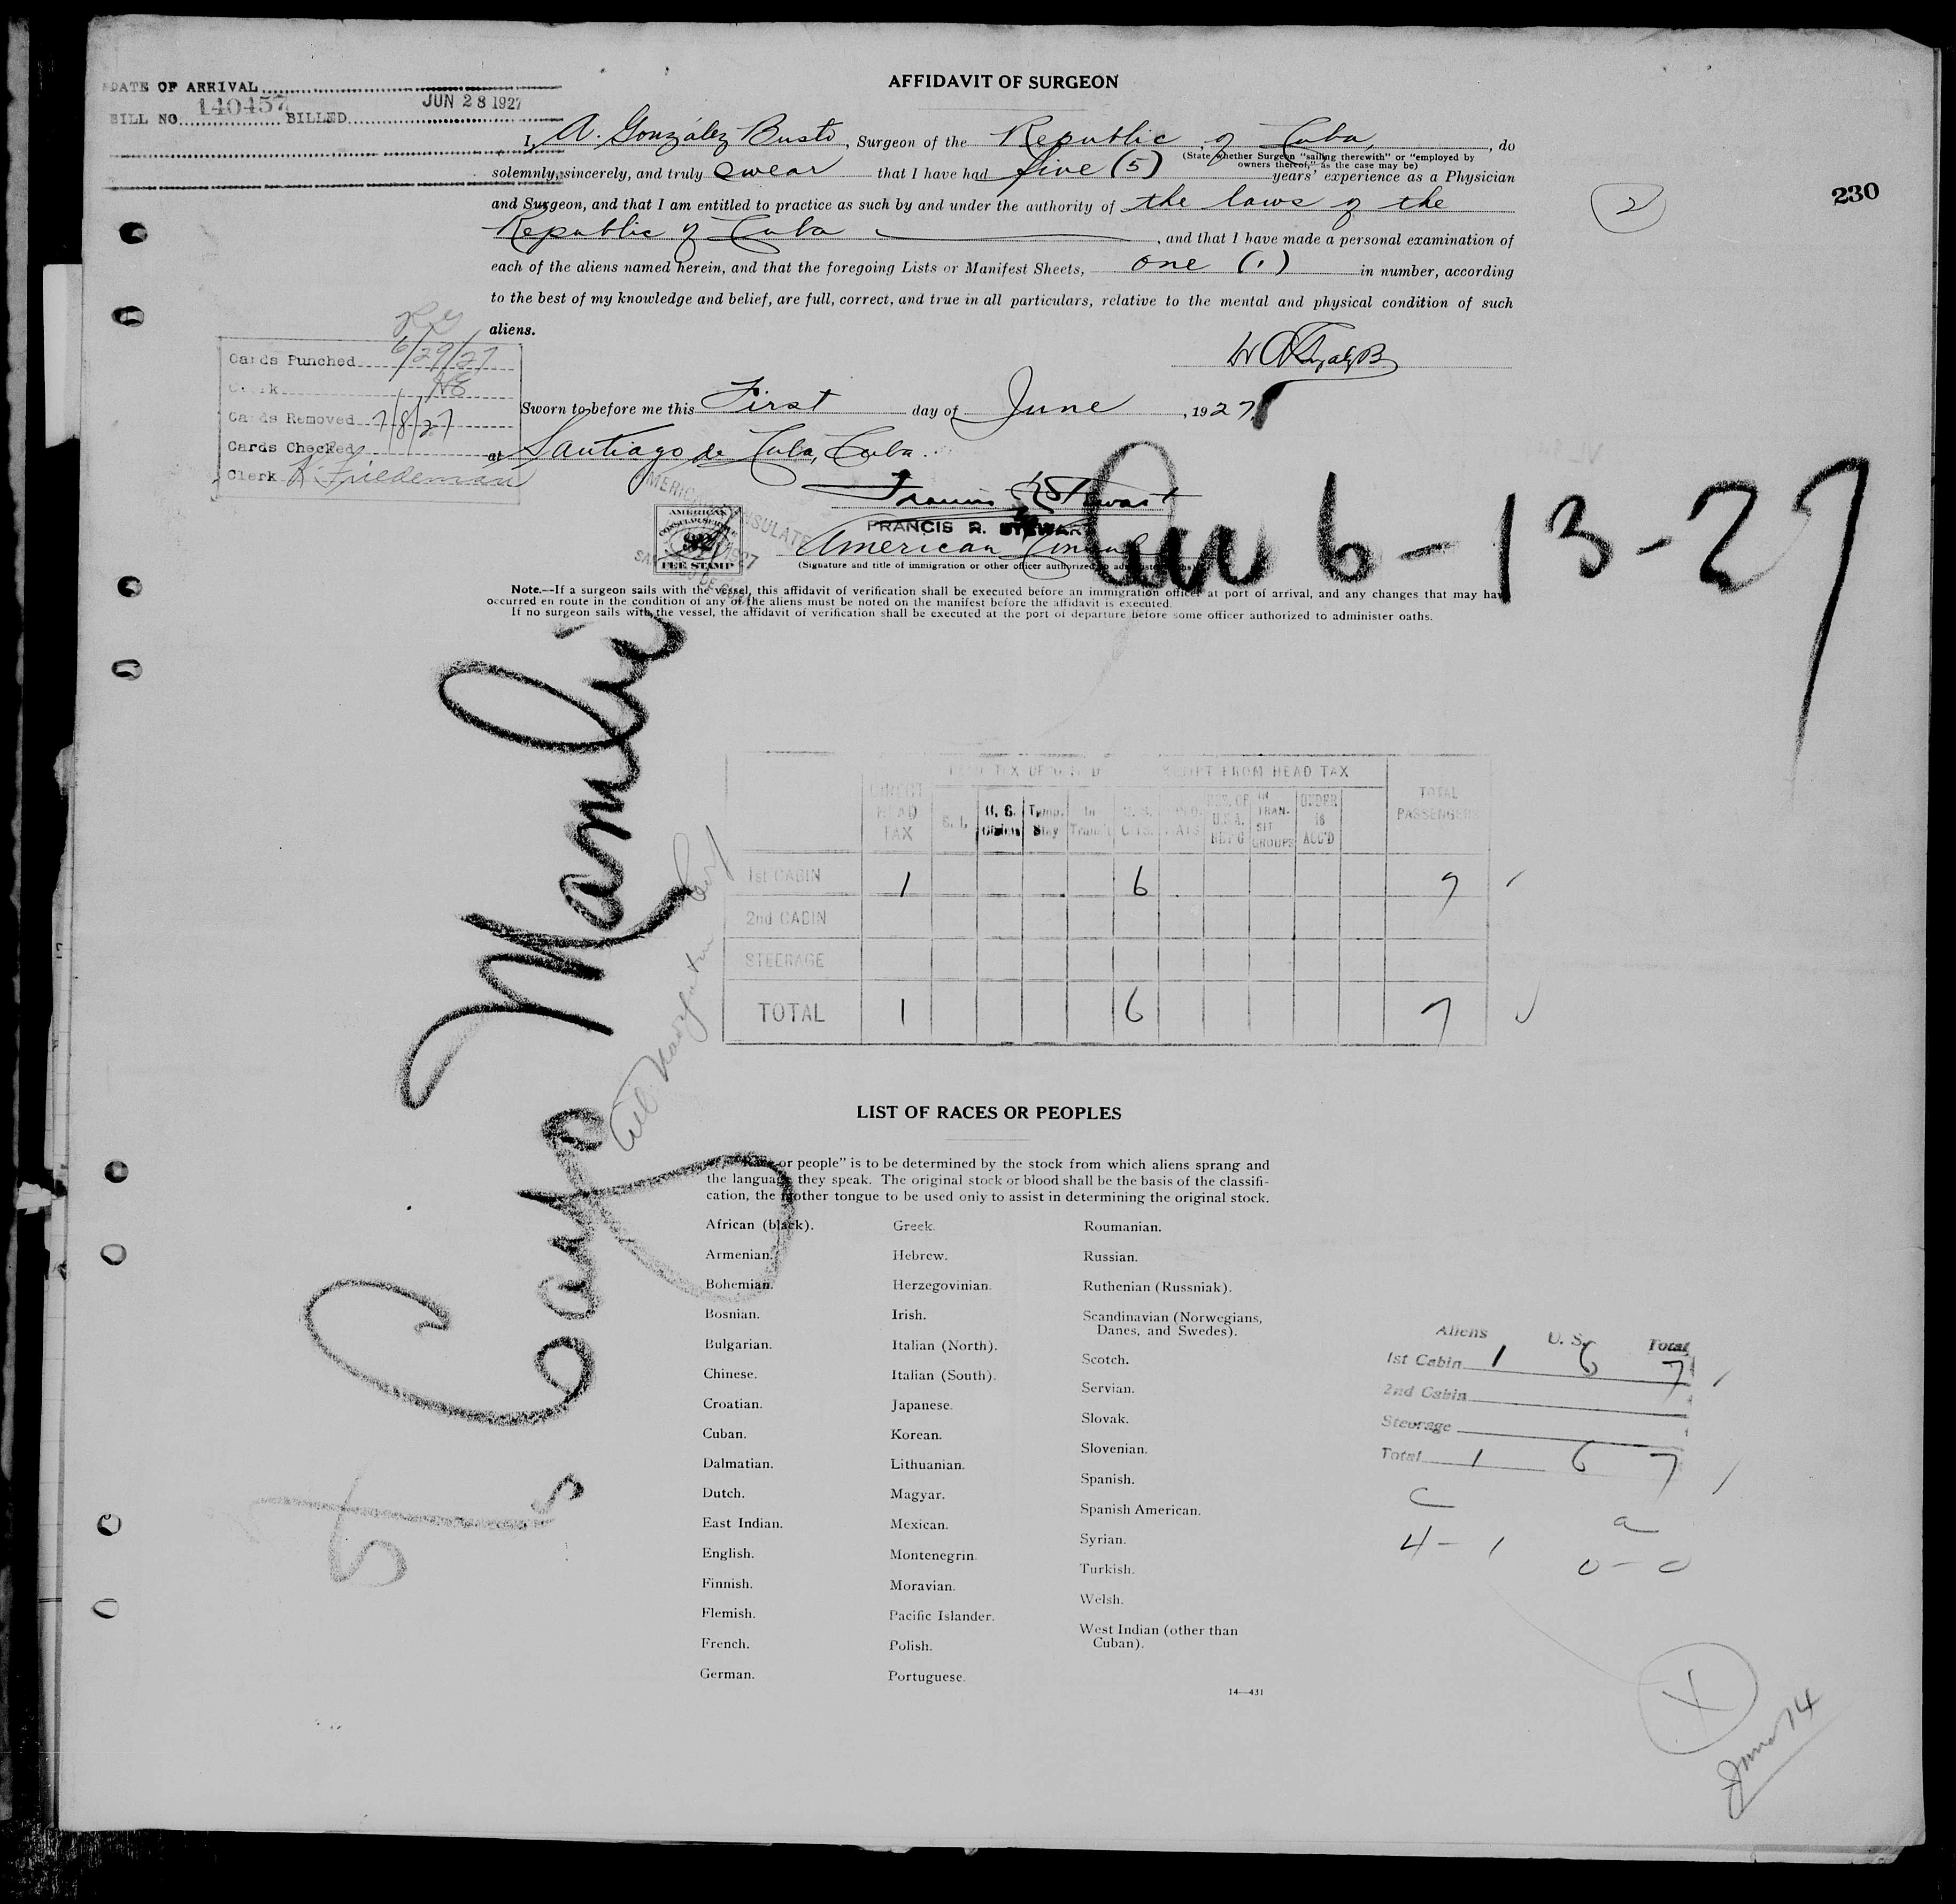 DATE OF ARRIVAL
BILL NO. 140457 BILLED JUN 28 1927
230
2
AFFIDAVIT OF SURGEON
I, A. González Busto, Surgeon of the Republic of Cuba, do
(State whether Surgeon "sailing therewith" or "employed by
owners thereof," as the case may be)
solemnly, sincerely, and truly swear that I have had five (5) years' experience as a Physician
and Surgeon, and that I am entitled to practice as such by and under the authority of the laws of the
Republic of Cuba, and that I have made a personal examination of
each of the aliens named herein, and that the foregoing Lists or Manifest Sheets, one (1) in number, according
to the best of my knowledge and belief, are full, correct, and true in all particulars, relative to the mental and physical condition of such
aliens.
Cards Punched 6/29/27
Clerk
Cards Removed 7/8/27
Cards Checked
Clerk K. Friedeman
Sworn to before me this First day of June, 1927.
at Santiago de Cuba, Cuba.
Francis R Stewart
FRANCIS R. STEWART
American Consul
(Signature and title of immigration or other officer authorized to administer oaths)
AMERICAN CONSULATE
AMERICAN
CONSULAR SERVICE
FEE STAMP
6-13-27
Note.—If a surgeon sails with the vessel, this affidavit of verification shall be executed before an immigration officer at port of arrival, and any changes that may have
occurred en route in the condition of any of the aliens must be noted on the manifest before the affidavit is executed.
If no surgeon sails with the vessel, the affidavit of verification shall be executed at the port of departure before some officer authorized to administer oaths.
SS Cayo Mambi
HEAD TAX DEPOSITED EXEMPT FROM HEAD TAX
DIRECT HEAD TAX S. I. U. S. Citizens Temp. Stay In Transit U. S. CITS. RES. OF U.S.A. RET'G IN TRANSIT GROUPS UNDER 16 ACC'D TOTAL PASSENGERS
1st CABIN 1 6 7
2nd CABIN
STEERAGE
TOTAL 1 6 7
LIST OF RACES OR PEOPLES
"Race or people" is to be determined by the stock from which aliens sprang and
the language they speak. The original stock or blood shall be the basis of the classifi-
cation, the mother tongue to be used only to assist in determining the original stock.
African (black).
Armenian.
Bohemian.
Bosnian.
Bulgarian.
Chinese.
Croatian.
Cuban.
Dalmatian.
Dutch.
East Indian.
English.
Finnish.
Flemish.
French.
German.
Greek.
Hebrew.
Herzegovinian.
Irish.
Italian (North).
Italian (South).
Japanese.
Korean.
Lithuanian.
Magyar.
Mexican.
Montenegrin.
Moravian.
Pacific Islander.
Polish.
Portuguese.
Roumanian.
Russian.
Ruthenian (Russniak).
Scandinavian (Norwegians,
Danes, and Swedes).
Scotch.
Servian.
Slovak.
Slovenian.
Spanish.
Spanish American.
Syrian.
Turkish.
Welsh.
West Indian (other than
Cuban).
14—431
Aliens U. S. Total
1st Cabin 1 6 7
2nd Cabin
Steerage
Total 1 6 7
C a
4 - 1 0 - 0
X
June 14